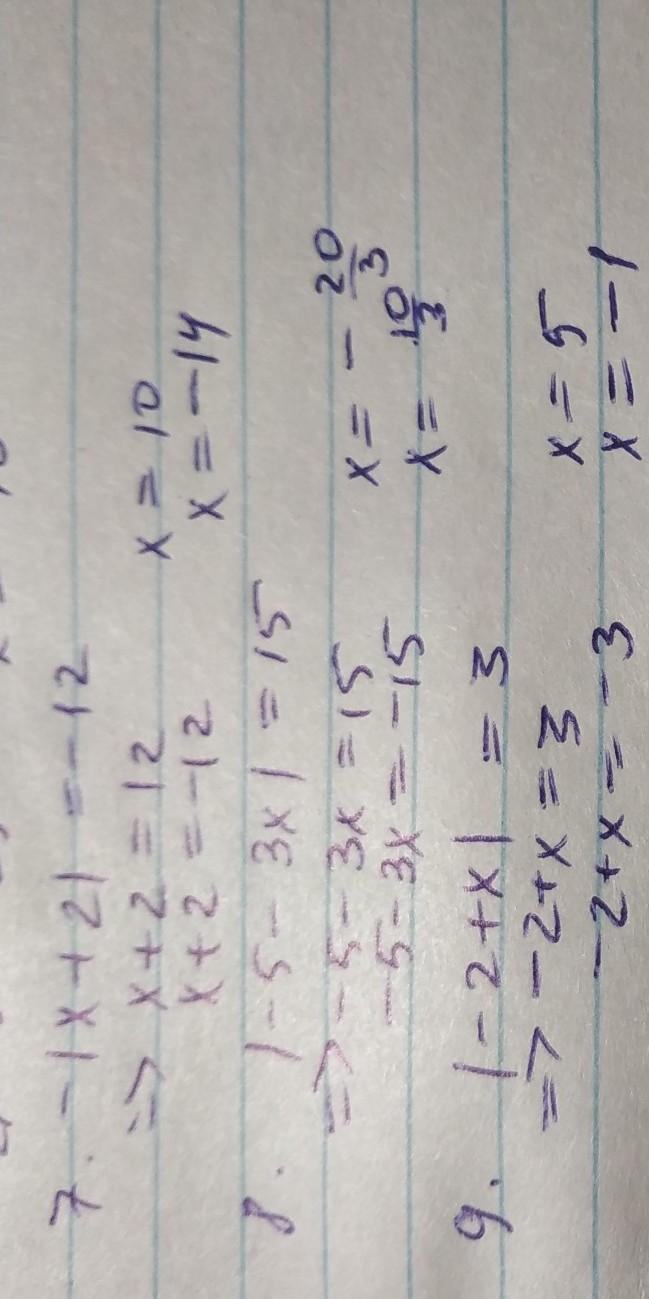 7. -|x+2| = -12
=> x+2 = 12 x = 10
x+2 = -12 x = -14
8. |-5-3x| = 15
=> -5-3x = 15 x = -20/3
-5-3x = -15 x = 10/3
9. |-2+x| = 3
=> -2+x = 3 x = 5
-2+x = -3 x = -1